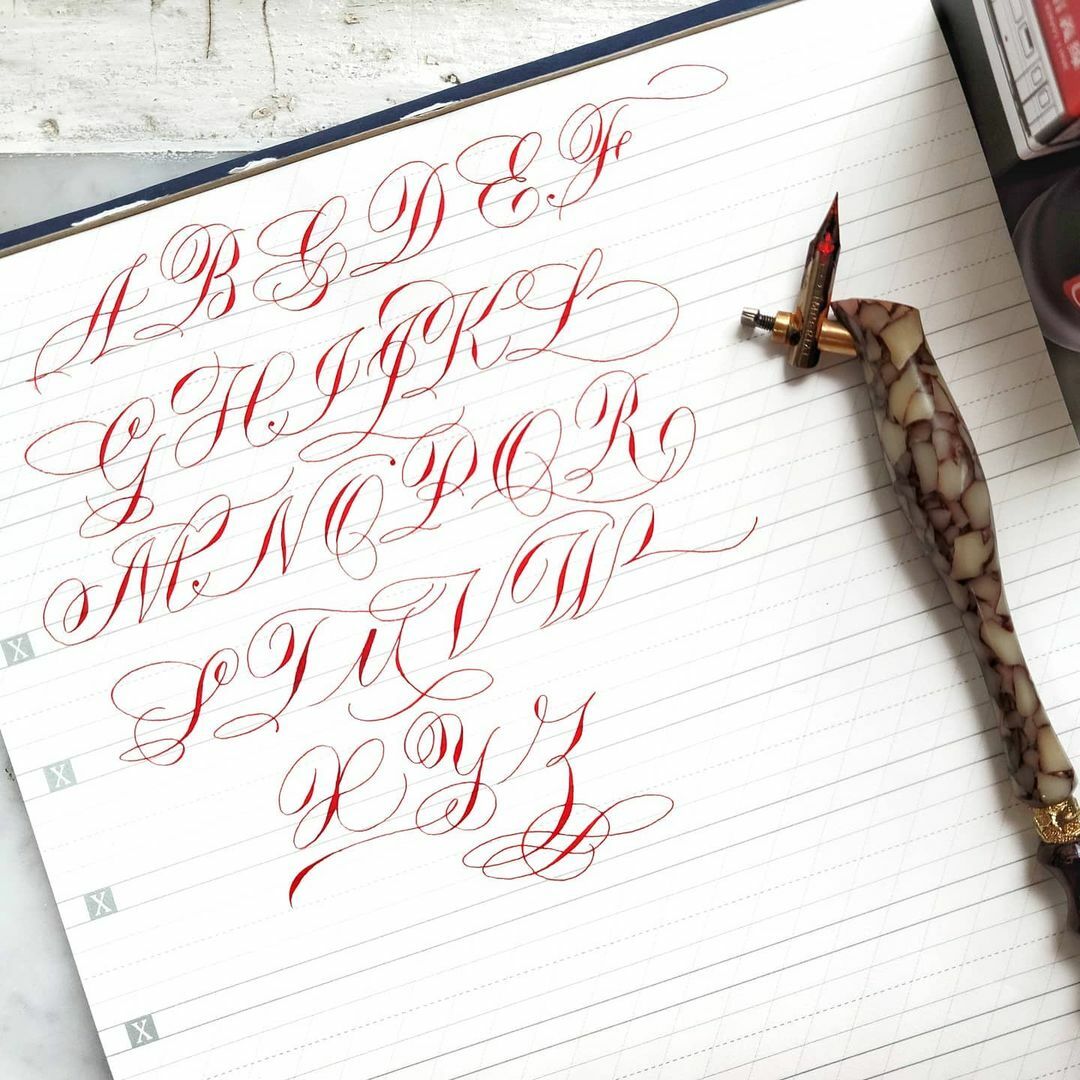 A B C D E F
G H I J K L
M N O P Q R
S T U V W
X Y Z
X
X
X
X